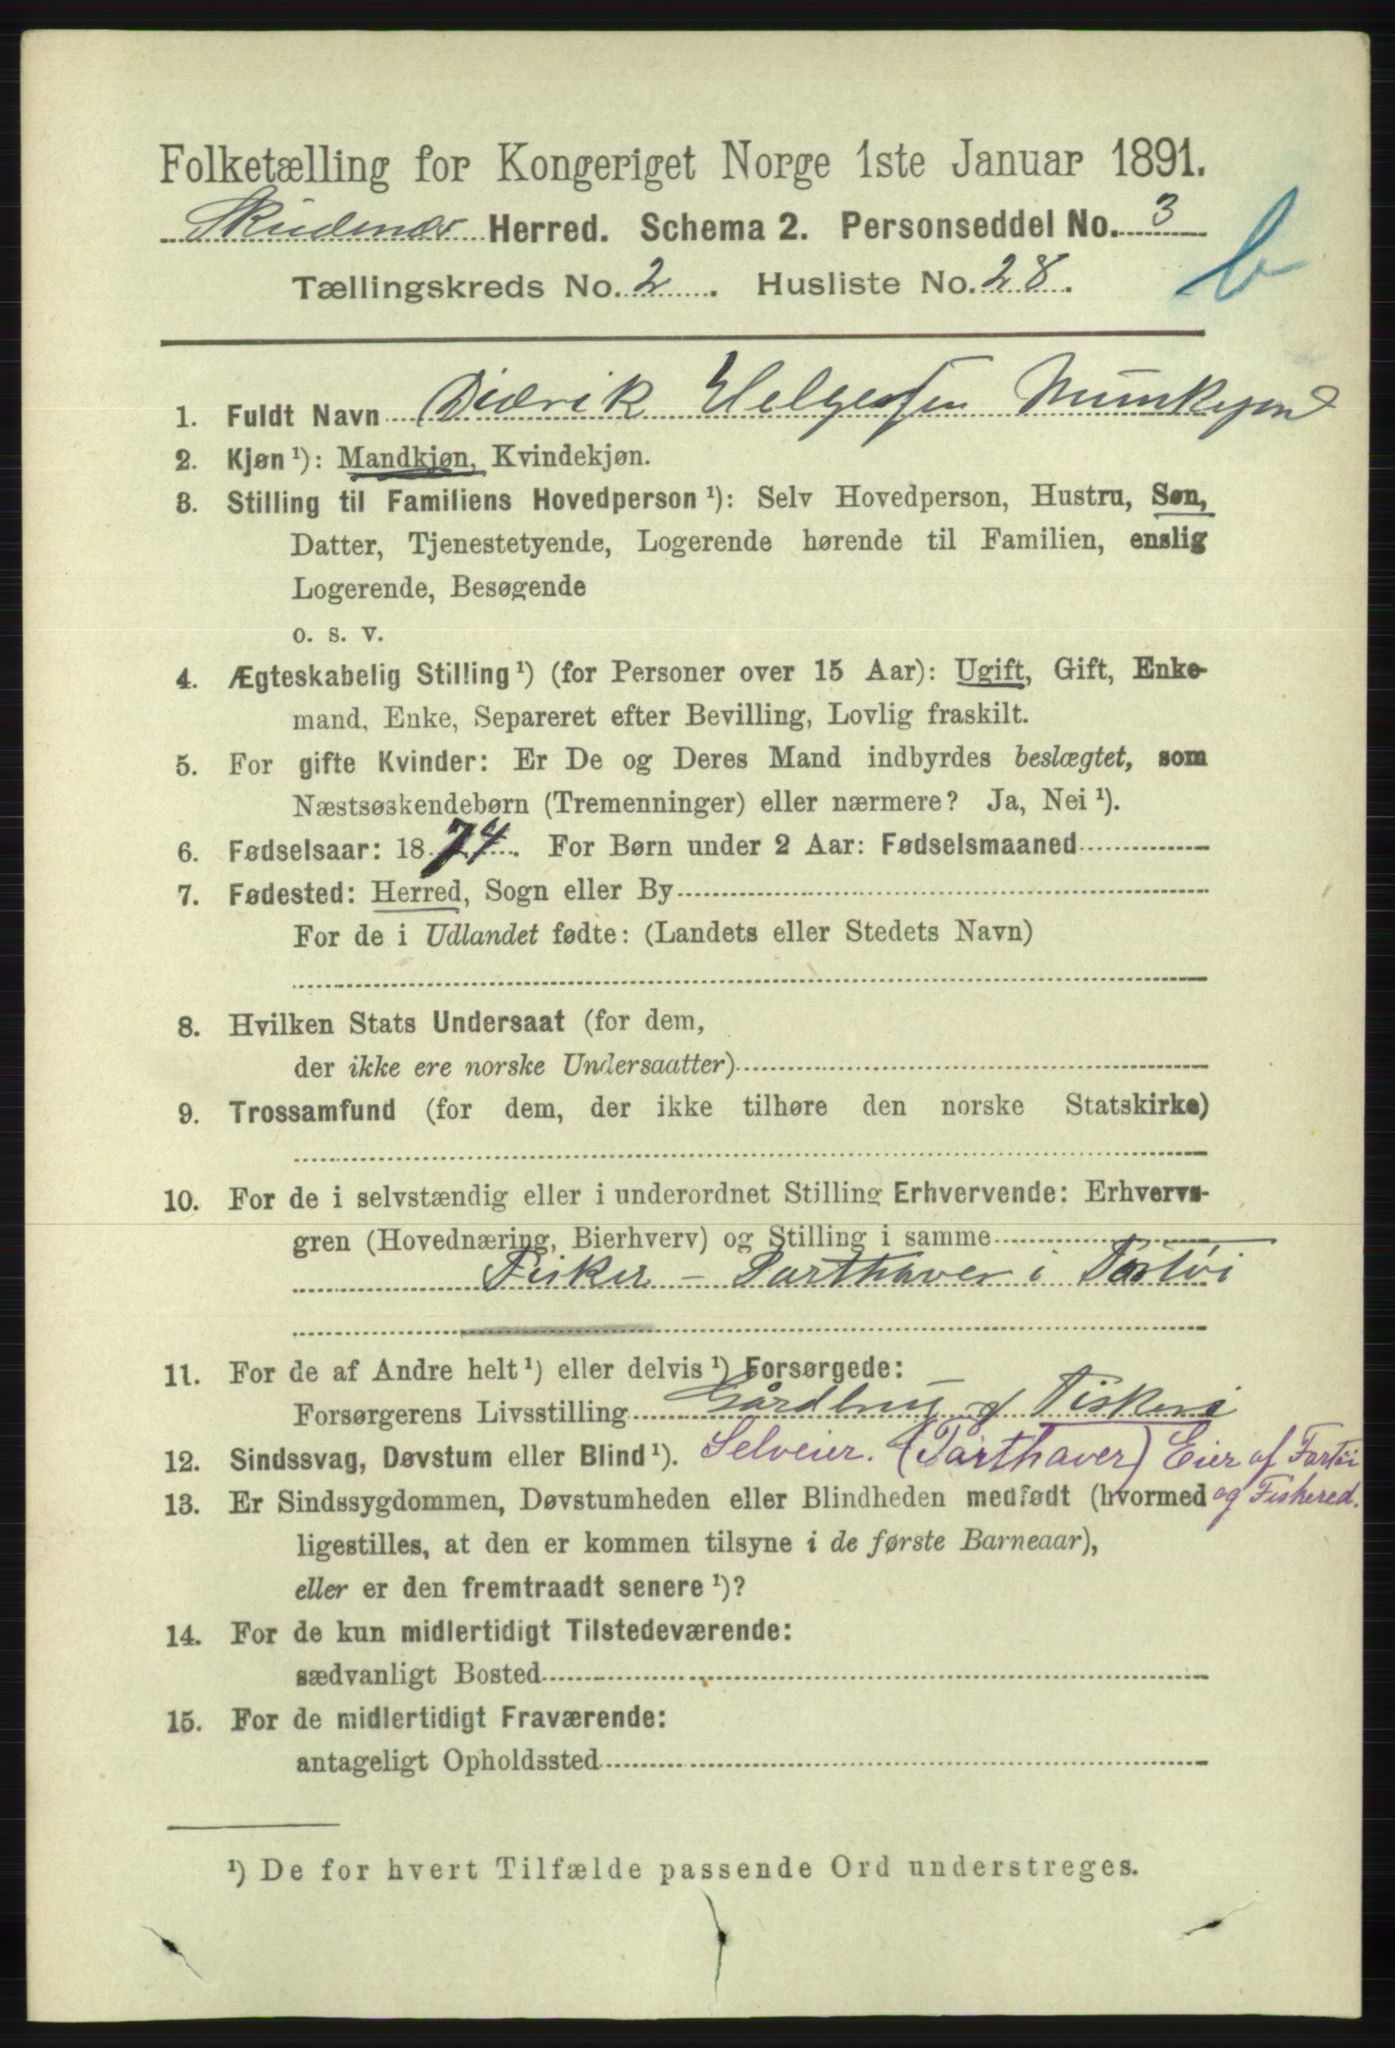 Folketælling for Kongeriget Norge 1ste Januar 1891.
Skudenæs Herred. Schema 2. Personseddel No. 3
b
Tællingskreds No. 2. Husliste No. 28.
1. Fuldt Navn Didrik Helgesen Munkejord
2. Kjøn ¹): Mandkjøn, Kvindekjøn.
3. Stilling til Familiens Hovedperson ¹): Selv Hovedperson, Hustru, Søn,
Datter, Tjenestetyende, Logerende hørende til Familien, enslig
Logerende, Besøgende
o. s. v.
4. Ægteskabelig Stilling ¹) (for Personer over 15 Aar): Ugift, Gift, Enke-
mand, Enke, Separeret efter Bevilling, Lovlig fraskilt.
5. For gifte Kvinder: Er De og Deres Mand indbyrdes beslægtet, som
Næstsøskendebørn (Tremenninger) eller nærmere? Ja, Nei ¹).
6. Fødselsaar: 1874. For Børn under 2 Aar: Fødselsmaaned
7. Fødested: Herred, Sogn eller By
For de i Udlandet fødte: (Landets eller Stedets Navn)
8. Hvilken Stats Undersaat (for dem,
der ikke ere norske Undersaatter)
9. Trossamfund (for dem, der ikke tilhøre den norske Statskirke)
10. For de i selvstændig eller i underordnet Stilling Erhvervende: Erhvervs-
gren (Hovednæring, Bierhverv) og Stilling i samme
Fisker - Parthaver i Fartøi
11. For de af Andre helt ¹) eller delvis ¹) Forsørgede:
Forsørgerens Livsstilling Gårdbrug & Fiskeri
12. Sindssvag, Døvstum eller Blind ¹). Selveier. (Parthaver) Eier af Fartøi
13. Er Sindssygdommen, Døvstumheden eller Blindheden medfødt (hvormed og Fiskered.
ligestilles, at den er kommen tilsyne i de første Barneaar),
eller er den fremtraadt senere ¹)?
14. For de kun midlertidigt Tilstedeværende:
sædvanligt Bosted
15. For de midlertidigt Fraværende:
antageligt Opholdssted
¹) De for hvert Tilfælde passende Ord understreges.